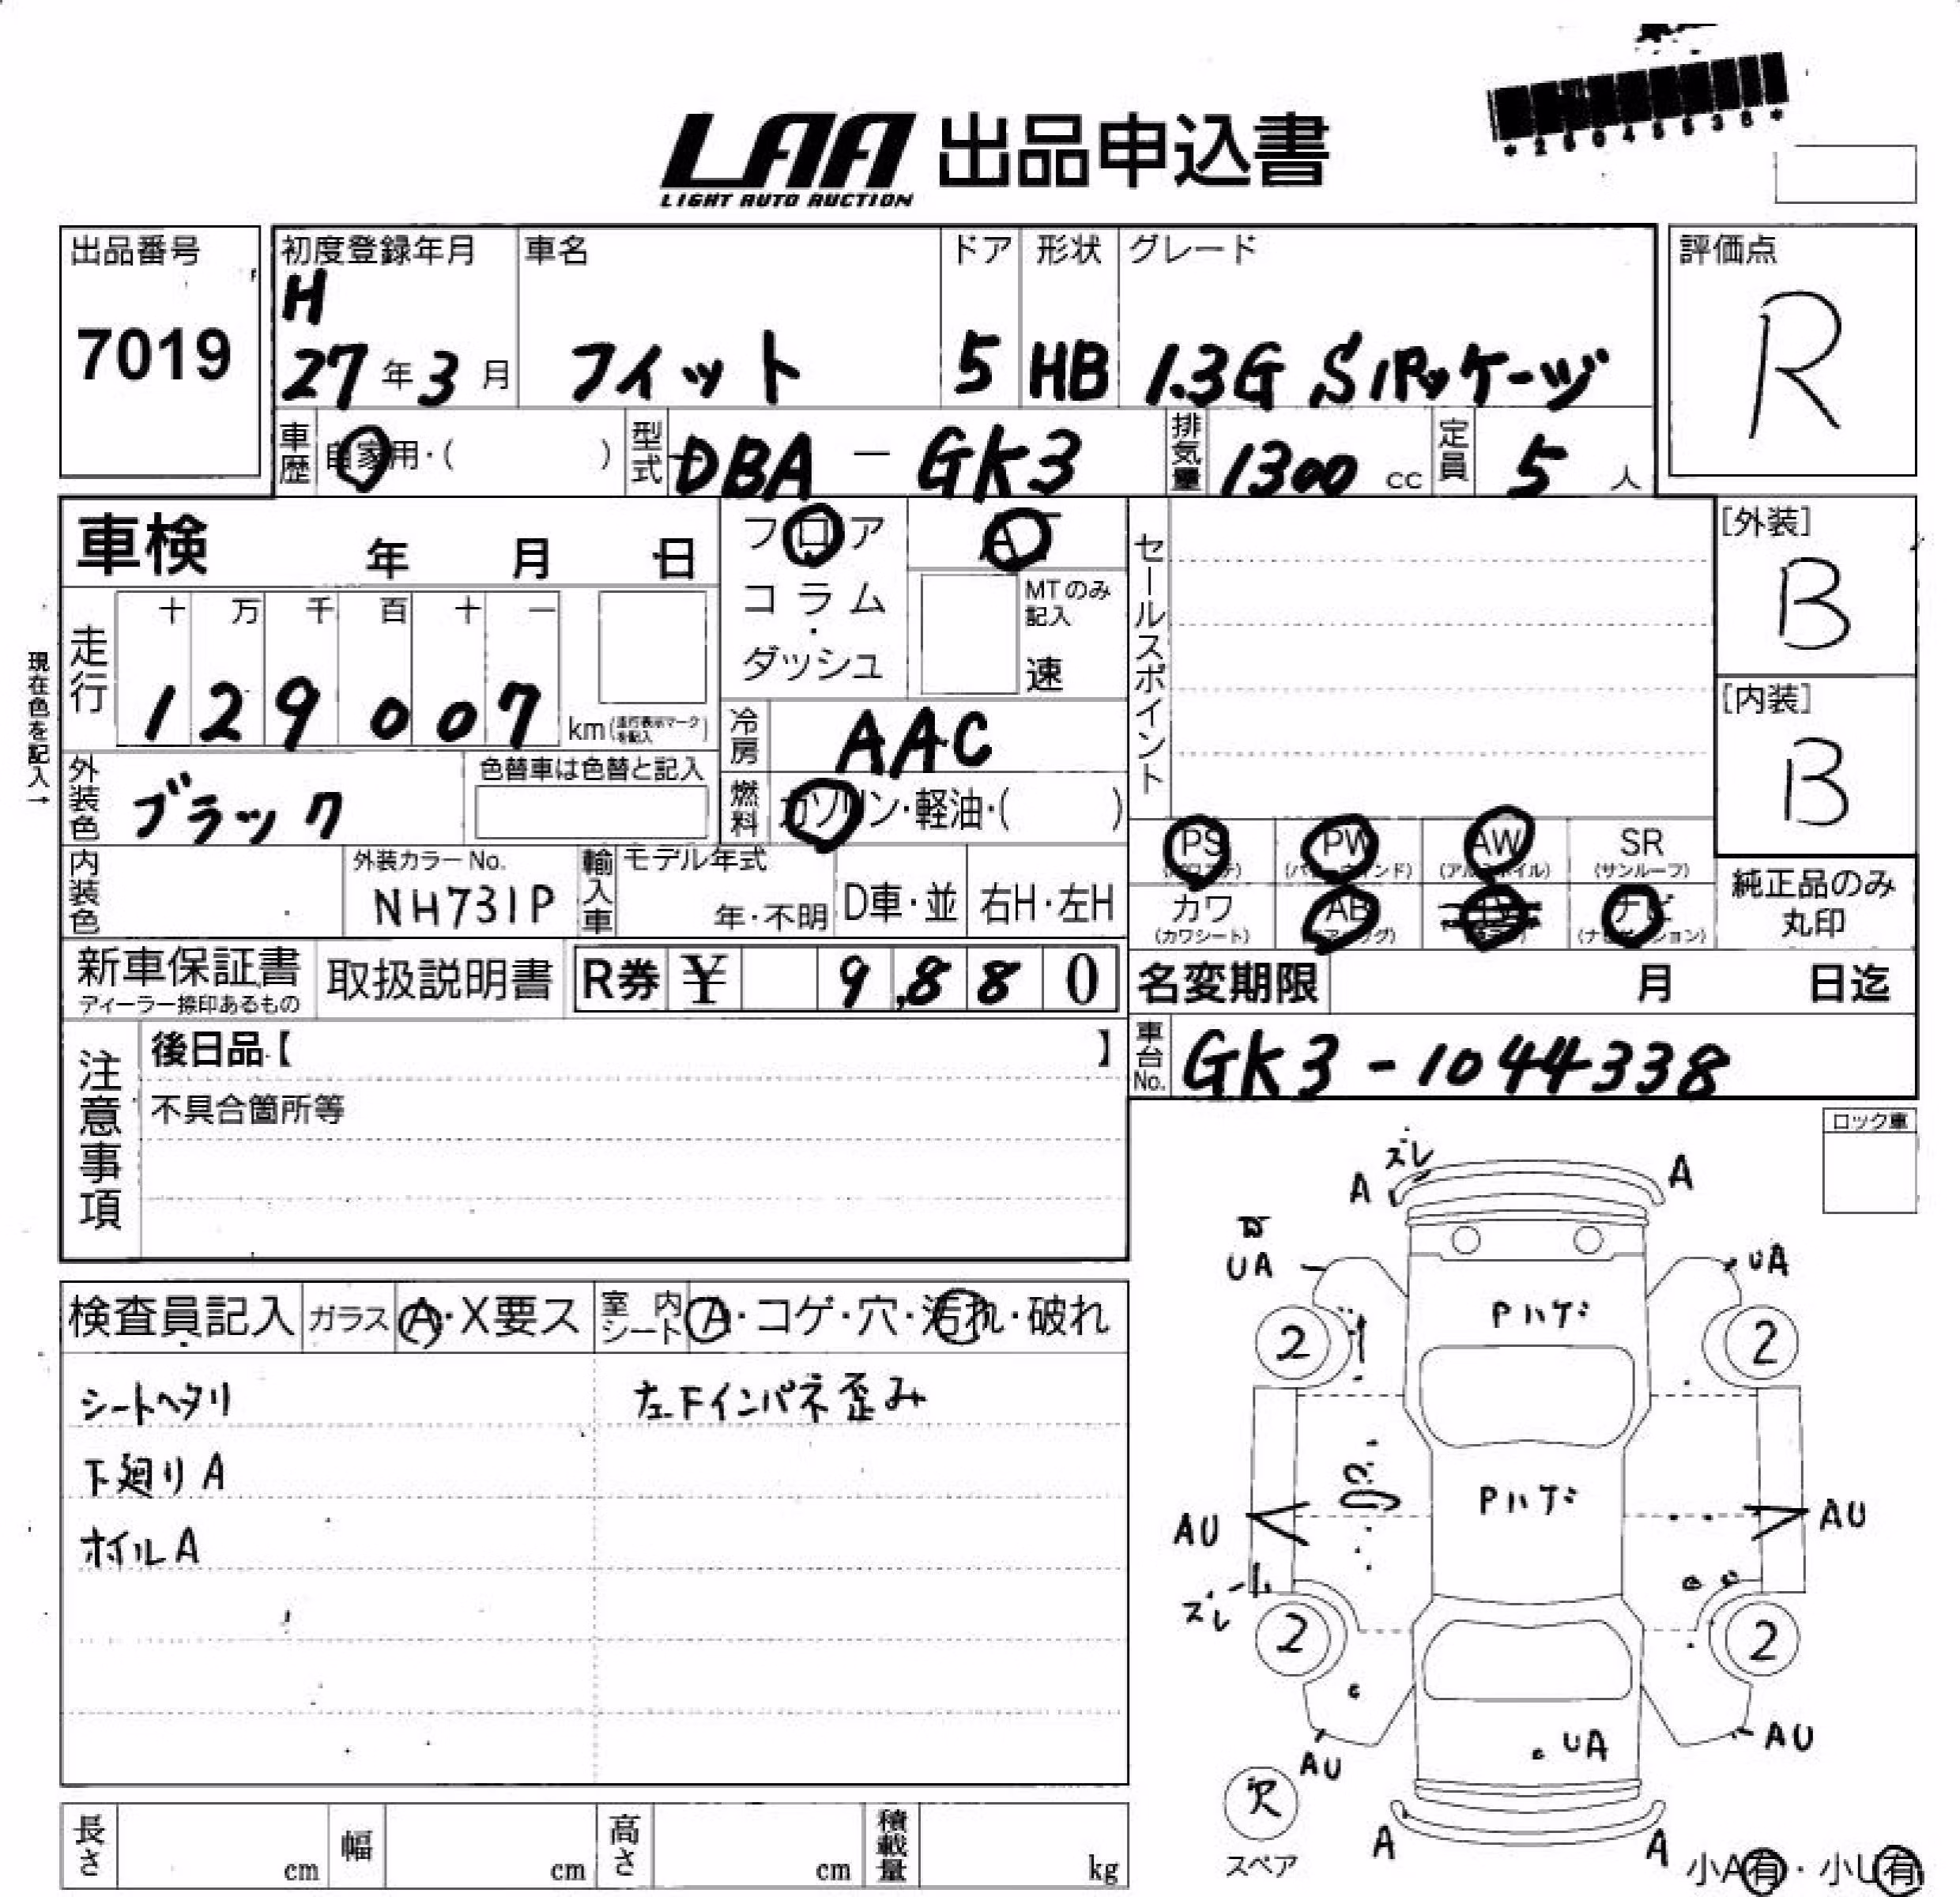 *25045530*
LAA 出品申込書
LIGHT AUTO AUCTION
出品番号 初度登録年月 車名 ドア 形状 グレード 評価点
7019 H 27年3月 フィット 5 HB 1.3G Sパッケージ R
車歴 自家用・( ) 型式 DBA - GK3 排気量 1300 cc 定員 5 人
車検 年 月 日 フロア AT セールスポイント [外装]
コラム・ダッシュ MTのみ記入 速 B
走行 十 万 千 百 十 一
129007 km (走行表示マークを記入)
現在色を記入→
[内装]
B
冷房 AAC
外装色 ブラック 色替車は色替と記入 燃料 ガソリン・軽油・( )
PS PW AW SR
(パワステ) (パワーウインド) (アルミホイル) (サンルーフ)
内装色 外装カラーNo. NH731P 輸入車 モデル年式 年・不明 D車・並 右H・左H
カワ AB ナビ
(カワシート) (エアーバッグ) (ナビゲーション)
純正品のみ
丸印
新車保証書 取扱説明書 R券 ¥ 9,880 名変期限 月 日迄
ディーラー捺印あるもの
注意事項 後日品【 】
不具合箇所等
車台No. GK3-1044338
ロック車
検査員記入 ガラス A・X要ス 室内シート A・コゲ・穴・汚れ・破れ
シートヘタリ 左Fインパネ歪み
下廻りA
ホイルA
ズレ
A A
UA UA
Pハゲ
2 2
Pハゲ
AU AU
ズレ
2 2
AU UA AU
欠
スペア
A A
小A有・小U有
長さ cm 幅 cm 高さ cm 積載量 kg